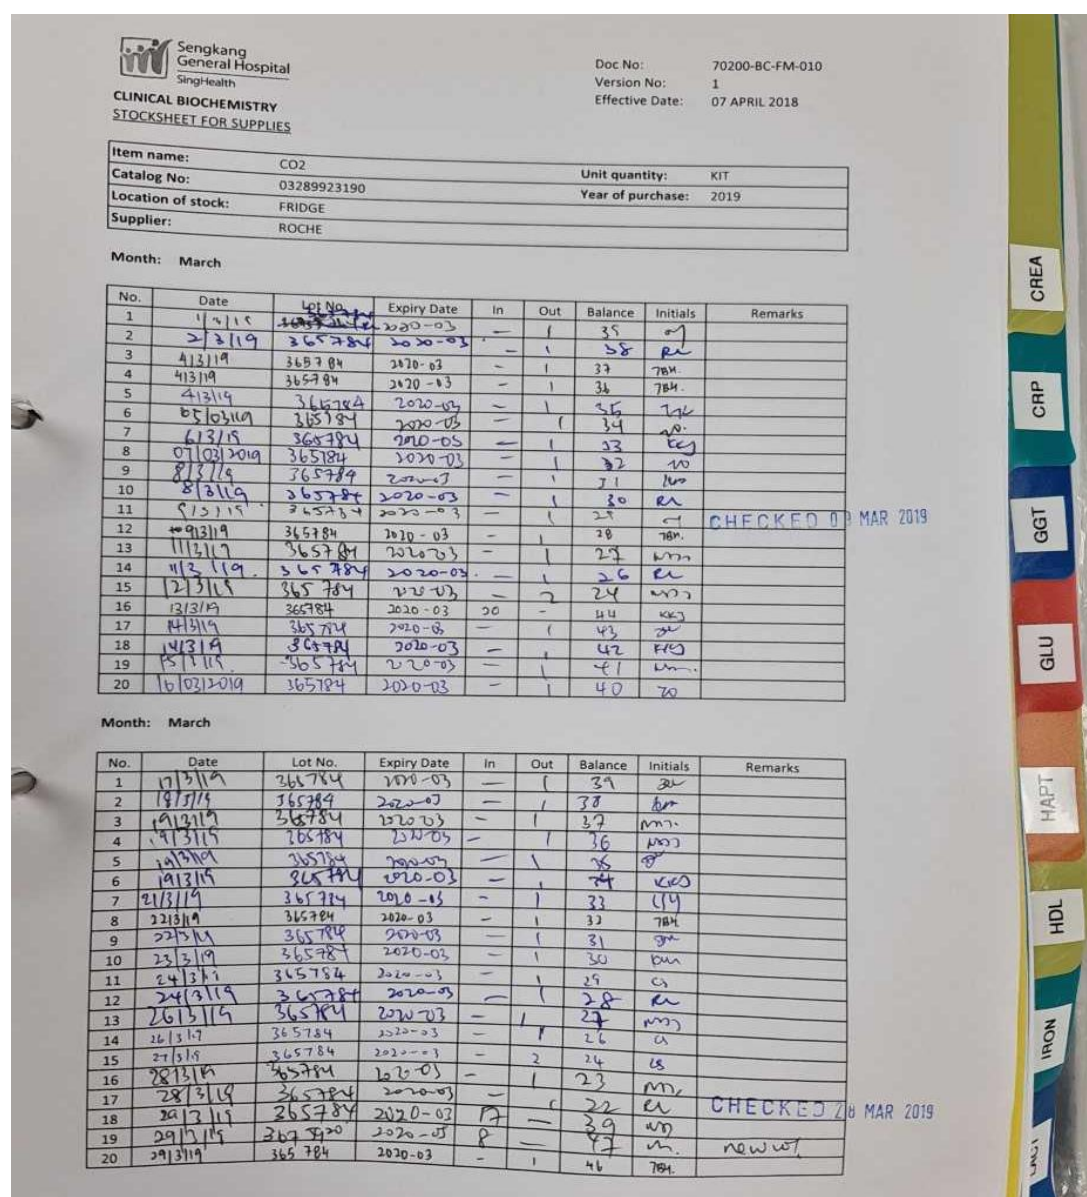 Sengkang
General Hospital
SingHealth
Doc No: 70200-BC-FM-010
Version No: 1
Effective Date: 07 APRIL 2018
CLINICAL BIOCHEMISTRY
STOCKSHEET FOR SUPPLIES
Item name: CO2 Unit quantity: KIT
Catalog No: 03289923190 Year of purchase: 2019
Location of stock: FRIDGE
Supplier: ROCHE
Month: March
No. Date Lot No. Expiry Date In Out Balance Initials Remarks
1 2020-03 — 1
2 2/3/19 365784 2020-03 — 1 38
3 4/3/19 365784 2020-03 - 1 37 TBH.
4 4/3/19 365784 2020-03 - 1 36 TBH.
5 4/3/19 365784 2020-03 — 1 35
6 05/03/19 365784 2020-03 — 1 34
7 6/3/19 365784 — 1 33 KKJ
8 07/03/2019 365784 2020-03 — 1 32
9 8/3/19 365784 2020-03 — 1 31
10 8/3/19 365784 2020-03 — 1 30
11 9/3/19 365784 2020-03 — 1 29 CHECKED 09 MAR 2019
12 9/3/19 365784 2020-03 - 1 28 TBH.
13 11/3/19 365784 2020-03 — 1 27
14 11/3/19. 365784 2020-03. — 1 26
15 12/3/19 365784 2020-03 — 2 24
16 13/3/19 365784 2020-03 20 - 44 KKJ
17 14/3/19 365784 2020-03 - 1 43
18 14/3/19 365784 2020-03 — 1 42
19 15/3/19 365784 2020-03 — 1 41
20 16/03/2019 365784 2020-03 — 1 40
Month: March
No. Date Lot No. Expiry Date In Out Balance Initials Remarks
1 17/3/19 365784 2020-03 — 1 39
2 18/3/19 365784 2020-03 — 1 38
3 19/3/19 365784 2020-03 — 1 37
4 19/3/19 365784 2020-03 — 1 36
5 19/3/19 365784 2020-03 — 1 35
6 19/3/19 365784 2020-03 — 1 34 KKJ
7 21/3/19 365784 2020-03 - 1 33
8 22/3/19 365784 2020-03 - 1 32 TBH.
9 22/3/19 365784 2020-03 - 1 31
10 23/3/19 365784 2020-03 — 1 30
11 24/3/19 365784 2020-03 — 1 29
12 24/3/19 365784 2020-03 — 1 28
13 26/3/19 365784 2020-03 — 1 27
14 26/3/19 365784 2020-03 — 1 26
15 27/3/19 365784 2020-03 — 2 24
16 28/3/19 365784 2020-03 — 1 23
17 28/3/19 365784 2020-03 — 1 22 CHECKED 28 MAR 2019
18 29/3/19 365784 2020-03 17 — 39
19 29/3/19 8 — 47 new lot
20 29/3/19 365784 2020-03 - 1 46 TBH.
CREA
CRP
GGT
GLU
HAPT
HDL
IRON
LACT